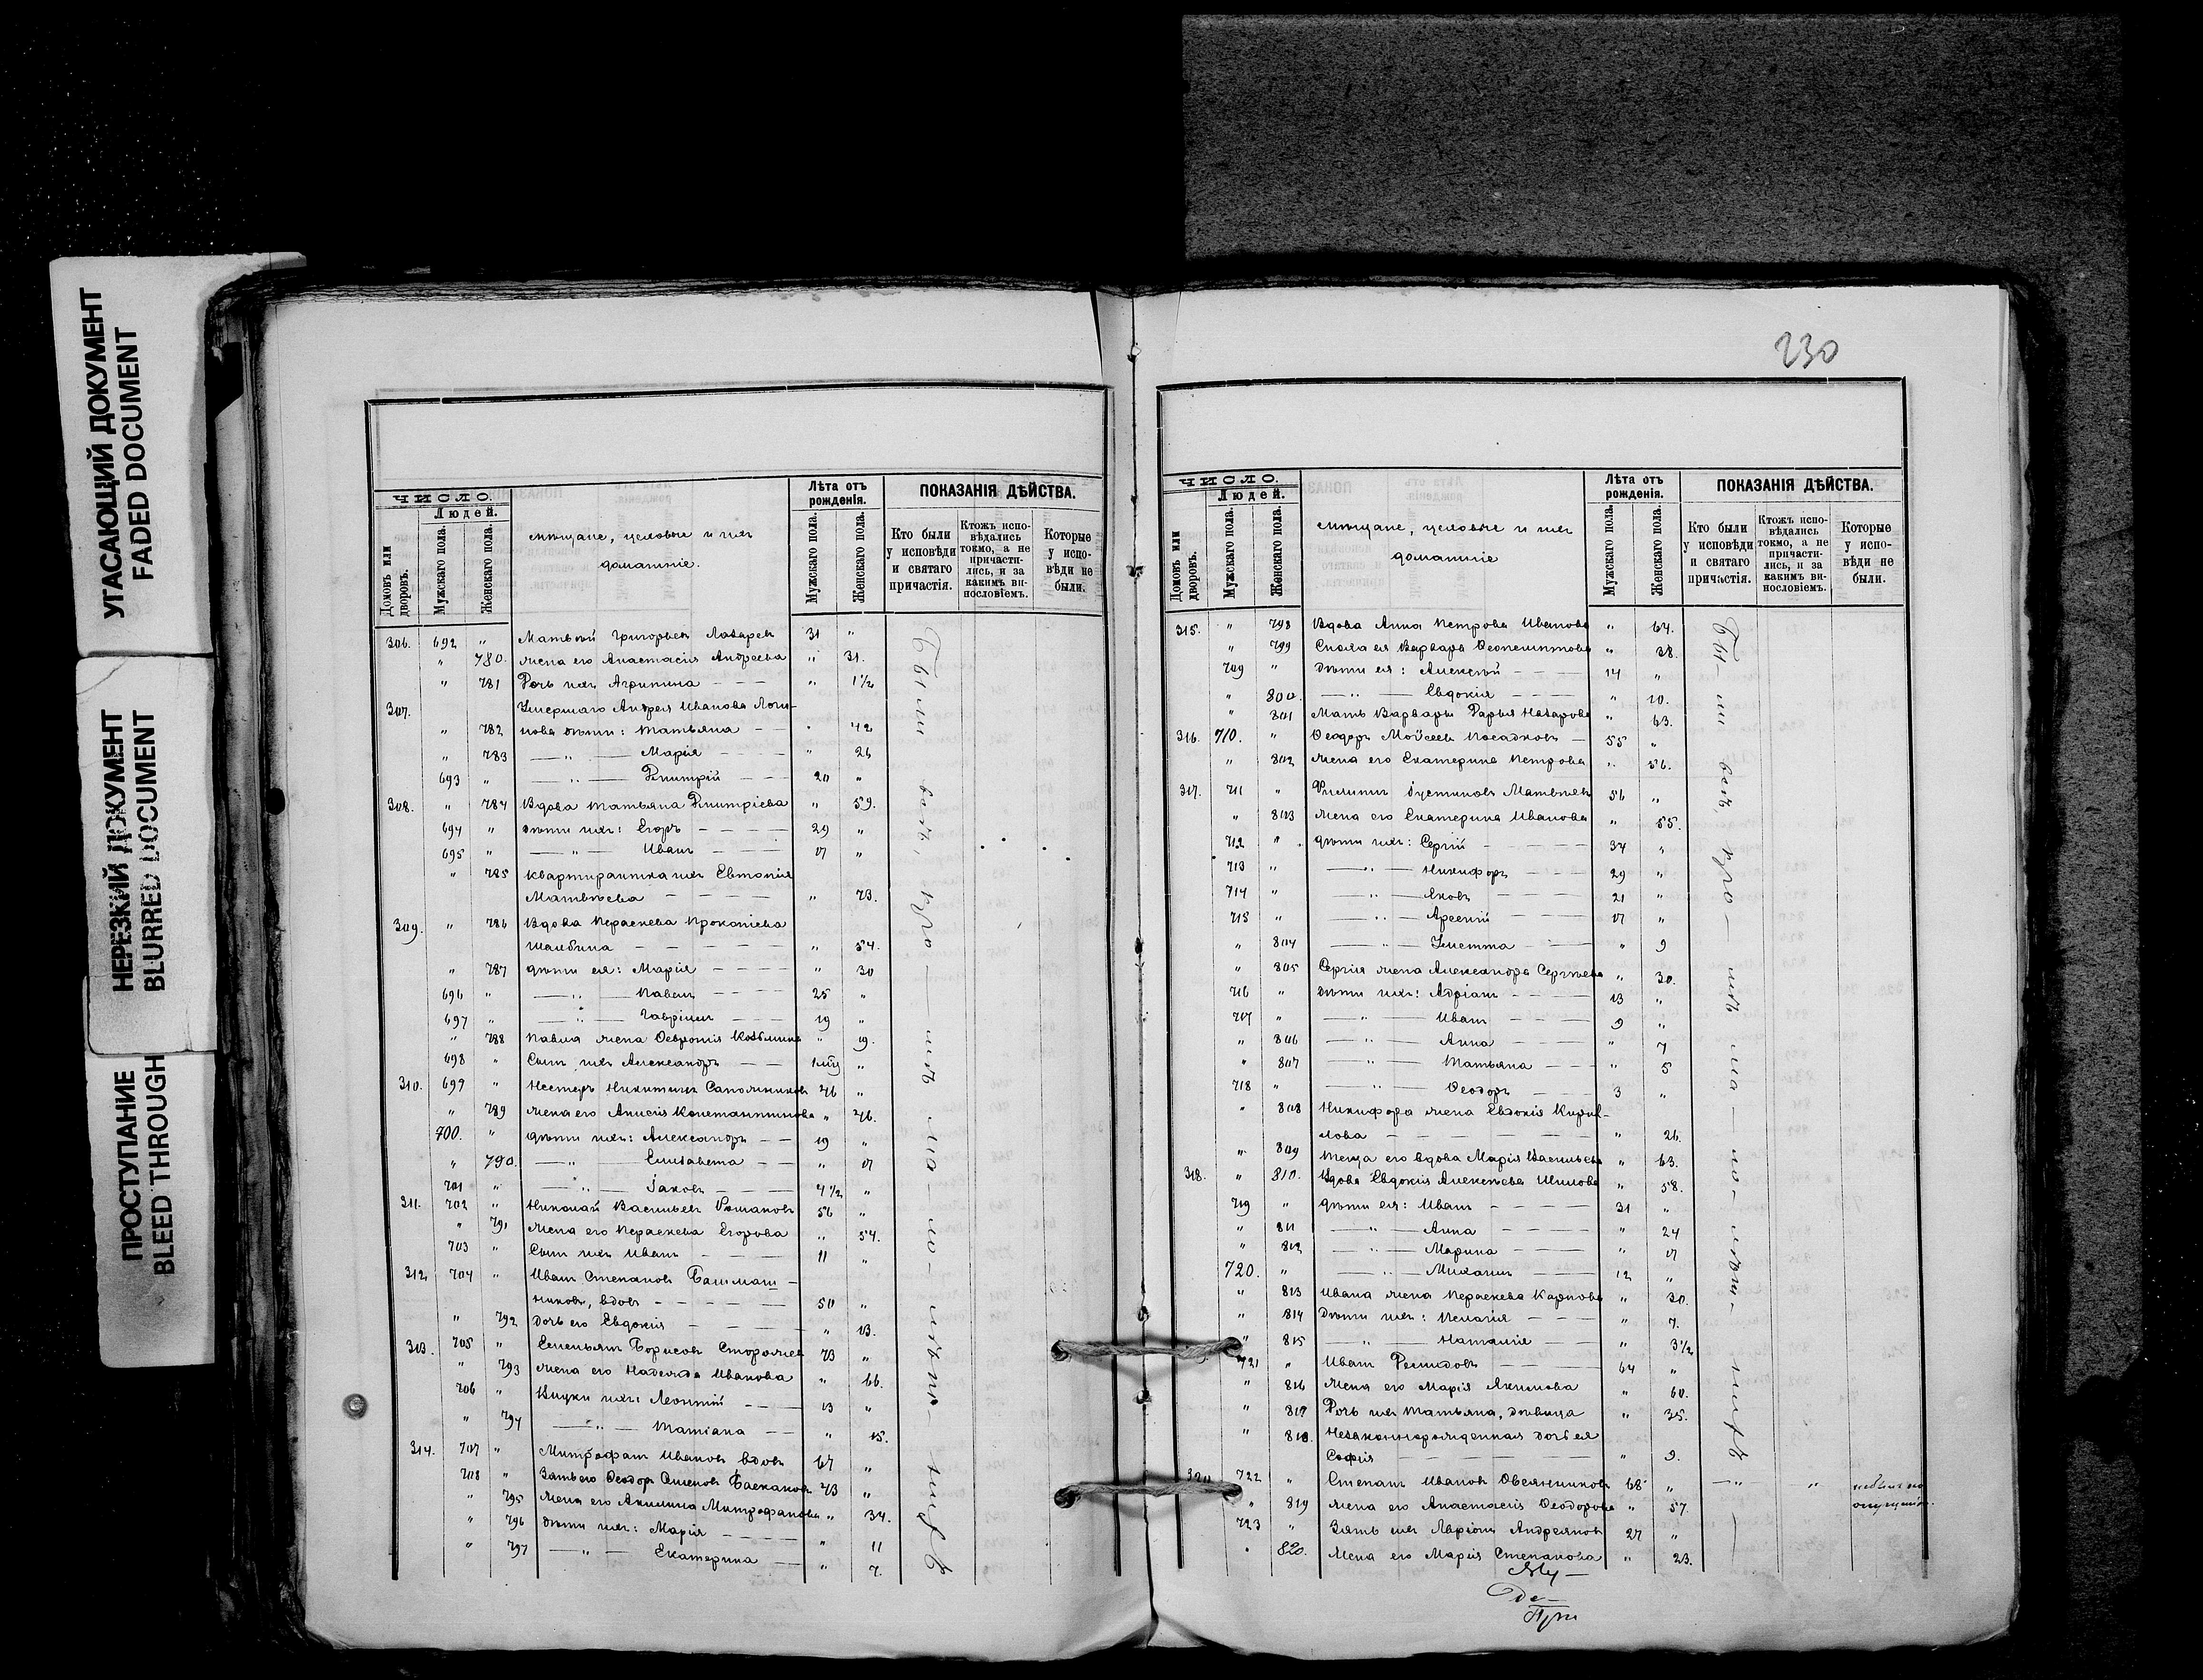 УГАСАЮЩИЙ ДОКУМЕНТ
FADED DOCUMENT
НЕРЕЗКИЙ ДОКУМЕНТ
BLURRED DOCUMENT
ПРОСТУПАНИЕ
BLEED THROUGH
ЧИСЛО.
Людей.
Домовъ или дворовъ.
Мужскаго пола.
Женскаго пола.
мѣщане, цеховые и ихъ
домашніе.
Лѣта отъ рожденія.
Мужскаго пола.
Женскаго пола.
ПОКАЗАНІЯ ДѢЙСТВА.
Кто были у исповѣди и святаго причастія.
Ктожъ исповѣдались токмо, а не причастились, и за какимъ винословіемъ.
Которые у исповѣди не были.
306. 692 " Матвѣй Григорьевъ Лазаревъ 31 "
" 780. жена его Анастасія Андреева " 31.
" 781 Дочь ихъ Агрипина - - - " 1½
307. Умершаго Андрея Иванова Логи-
" 782 нова дѣти: Татьяна - - " 42
" 783 — " — Марія - - - " 26
693 " — " — Дмитрій - - - 20 "
308. " 784 Вдова Татьяна Дмитріева " 59.
694 " дѣти ихъ: Егоръ - - - - 29 "
695 " — " — Иванъ - - - 17 "
" 785 квартирантка ихъ Евгенія
Матвѣева - - - - " 73.
309. " 786 Вдова Параскева Прокопіева
- - - - " 54.
" 787 дѣти ея: Марія - - - - " 30
696 " — " — Павелъ - - - - 25 "
697 " — " — Гавріилъ - - - 19 "
" 788 Павла жена Февронія Козьмина " 19.
698 " Сынъ ихъ Александръ - - "
310. 699 " Несторъ Никитинъ Сапожниковъ 46 "
" 789 жена его Анисія Константинова " 46.
700. " дѣти ихъ: Александръ - - 19 "
" 790. — " — Елизавета - - " 17
701 " — " — Іаковъ - - - 4½ "
311. 702 " Николай Васильевъ Романовъ 56 "
" 791 жена его Параскева Егорова " 54.
703 " Сынъ ихъ Иванъ - - - 11 "
312. 704 " Иванъ Степановъ Башмаш-
никовъ, вдовъ - - - - 50 "
" 792 дочь его Евдокія - - - - " 13.
313. 705 " Емельянъ Борисовъ Сторожевъ 73 "
" 793 жена его Надежда Иванова " 66.
706 " Внуки ихъ: Леонтій - - - 13 "
" 794 — " — Татіана - - " 15.
314. 707 " Митрофанъ Ивановъ вдовъ 67 "
708 " Зять его Ѳеодоръ Семеновъ Баскаковъ 43 "
" 795 жена его Акилина Митрофанова " 34.
" 796 дѣти ихъ: Марія - - - - " 11
" 797 — " — Екатерина - - " 7.
Были всѣ, кро-
230
ЧИСЛО.
Людей.
Домовъ или дворовъ.
Мужскаго пола.
Женскаго пола.
мѣщане, цеховые и ихъ
домашніе
Лѣта отъ рожденія.
Мужскаго пола.
Женскаго пола.
ПОКАЗАНІЯ ДѢЙСТВА.
Кто были у исповѣди и святаго причастія.
Ктожъ исповѣдались токмо, а не причастились, и за какимъ винословіемъ.
Которые у исповѣди не были.
315. " 798 Вдова Анна Петрова Иванова " 64.
" 799 Сноха ея Варвара Ѳеопемптова " 38.
709 " дѣти ея: Алексѣй - - - 14 "
" 800. — " — Евдокія - - - " 10.
" 801 Мать Варвары Дарья Назарова " 63.
316. 710. " Ѳеодоръ Мойсеевъ Посадковъ - 55 "
" 802 жена его Екатерина Петрова " 56.
317. 711 " Филиппъ Іустиновъ Матвѣевъ 56 "
" 803 жена его Екатерина Иванова " 55.
712 " дѣти ихъ: Сергій - - - - 34 "
713 " — " — Никифоръ - - - 29 "
714 " — " — Яковъ - - - - 21 "
715 " — " — Арсеній - - - 17 "
" 804 — " — - - " 9
" 805 Сергія жена Александра Сергѣева " 30.
716 " дѣти ихъ: Адріанъ - - - 13 "
717 " — " — Иванъ - - - 9 "
" 806 — " — Анна - - - " 7
" 807 — " — Татьяна - - - " 5
718 " — " — Ѳеодоръ - - - 3 "
" 808 Никифора жена Евдокія Кирил-
лова - - - - - - " 26.
" 809 Теща его вдова Марія Васильева " 63.
318. " 810. Вдова Евдокія Алексѣева Шилова " 58.
719 " дѣти ея: Иванъ - - - - 31 "
" 811 — " — Анна - - - - " 24
" 812 — " — Марина - - - " 17
720. " — " — Михаилъ - - - 12 "
" 813 Ивана жена Параскева Карпова " 30.
" 814 дѣти ихъ: Пелагія - - - " 7.
" 815 — " — Наталія - - " 3½
721 " Иванъ - - - 64 "
" 816 жена его Марія Акимова " 60.
" 817 Дочь ихъ Татьяна, дѣвица " 35.
" 818. Незаконнорожденная дочь ея
Софія - - - - - - " 9.
320 722 " Степанъ Ивановъ Овсянниковъ 68 " - " - "
" 819 жена его Анастасія Ѳеодорова " 57.
723 " Зять ихъ Ларіонъ Андреяновъ 27 "
" 820. жена его Марія Степанова " 23.
Бы-ли всѣ, кро-
Де-
При